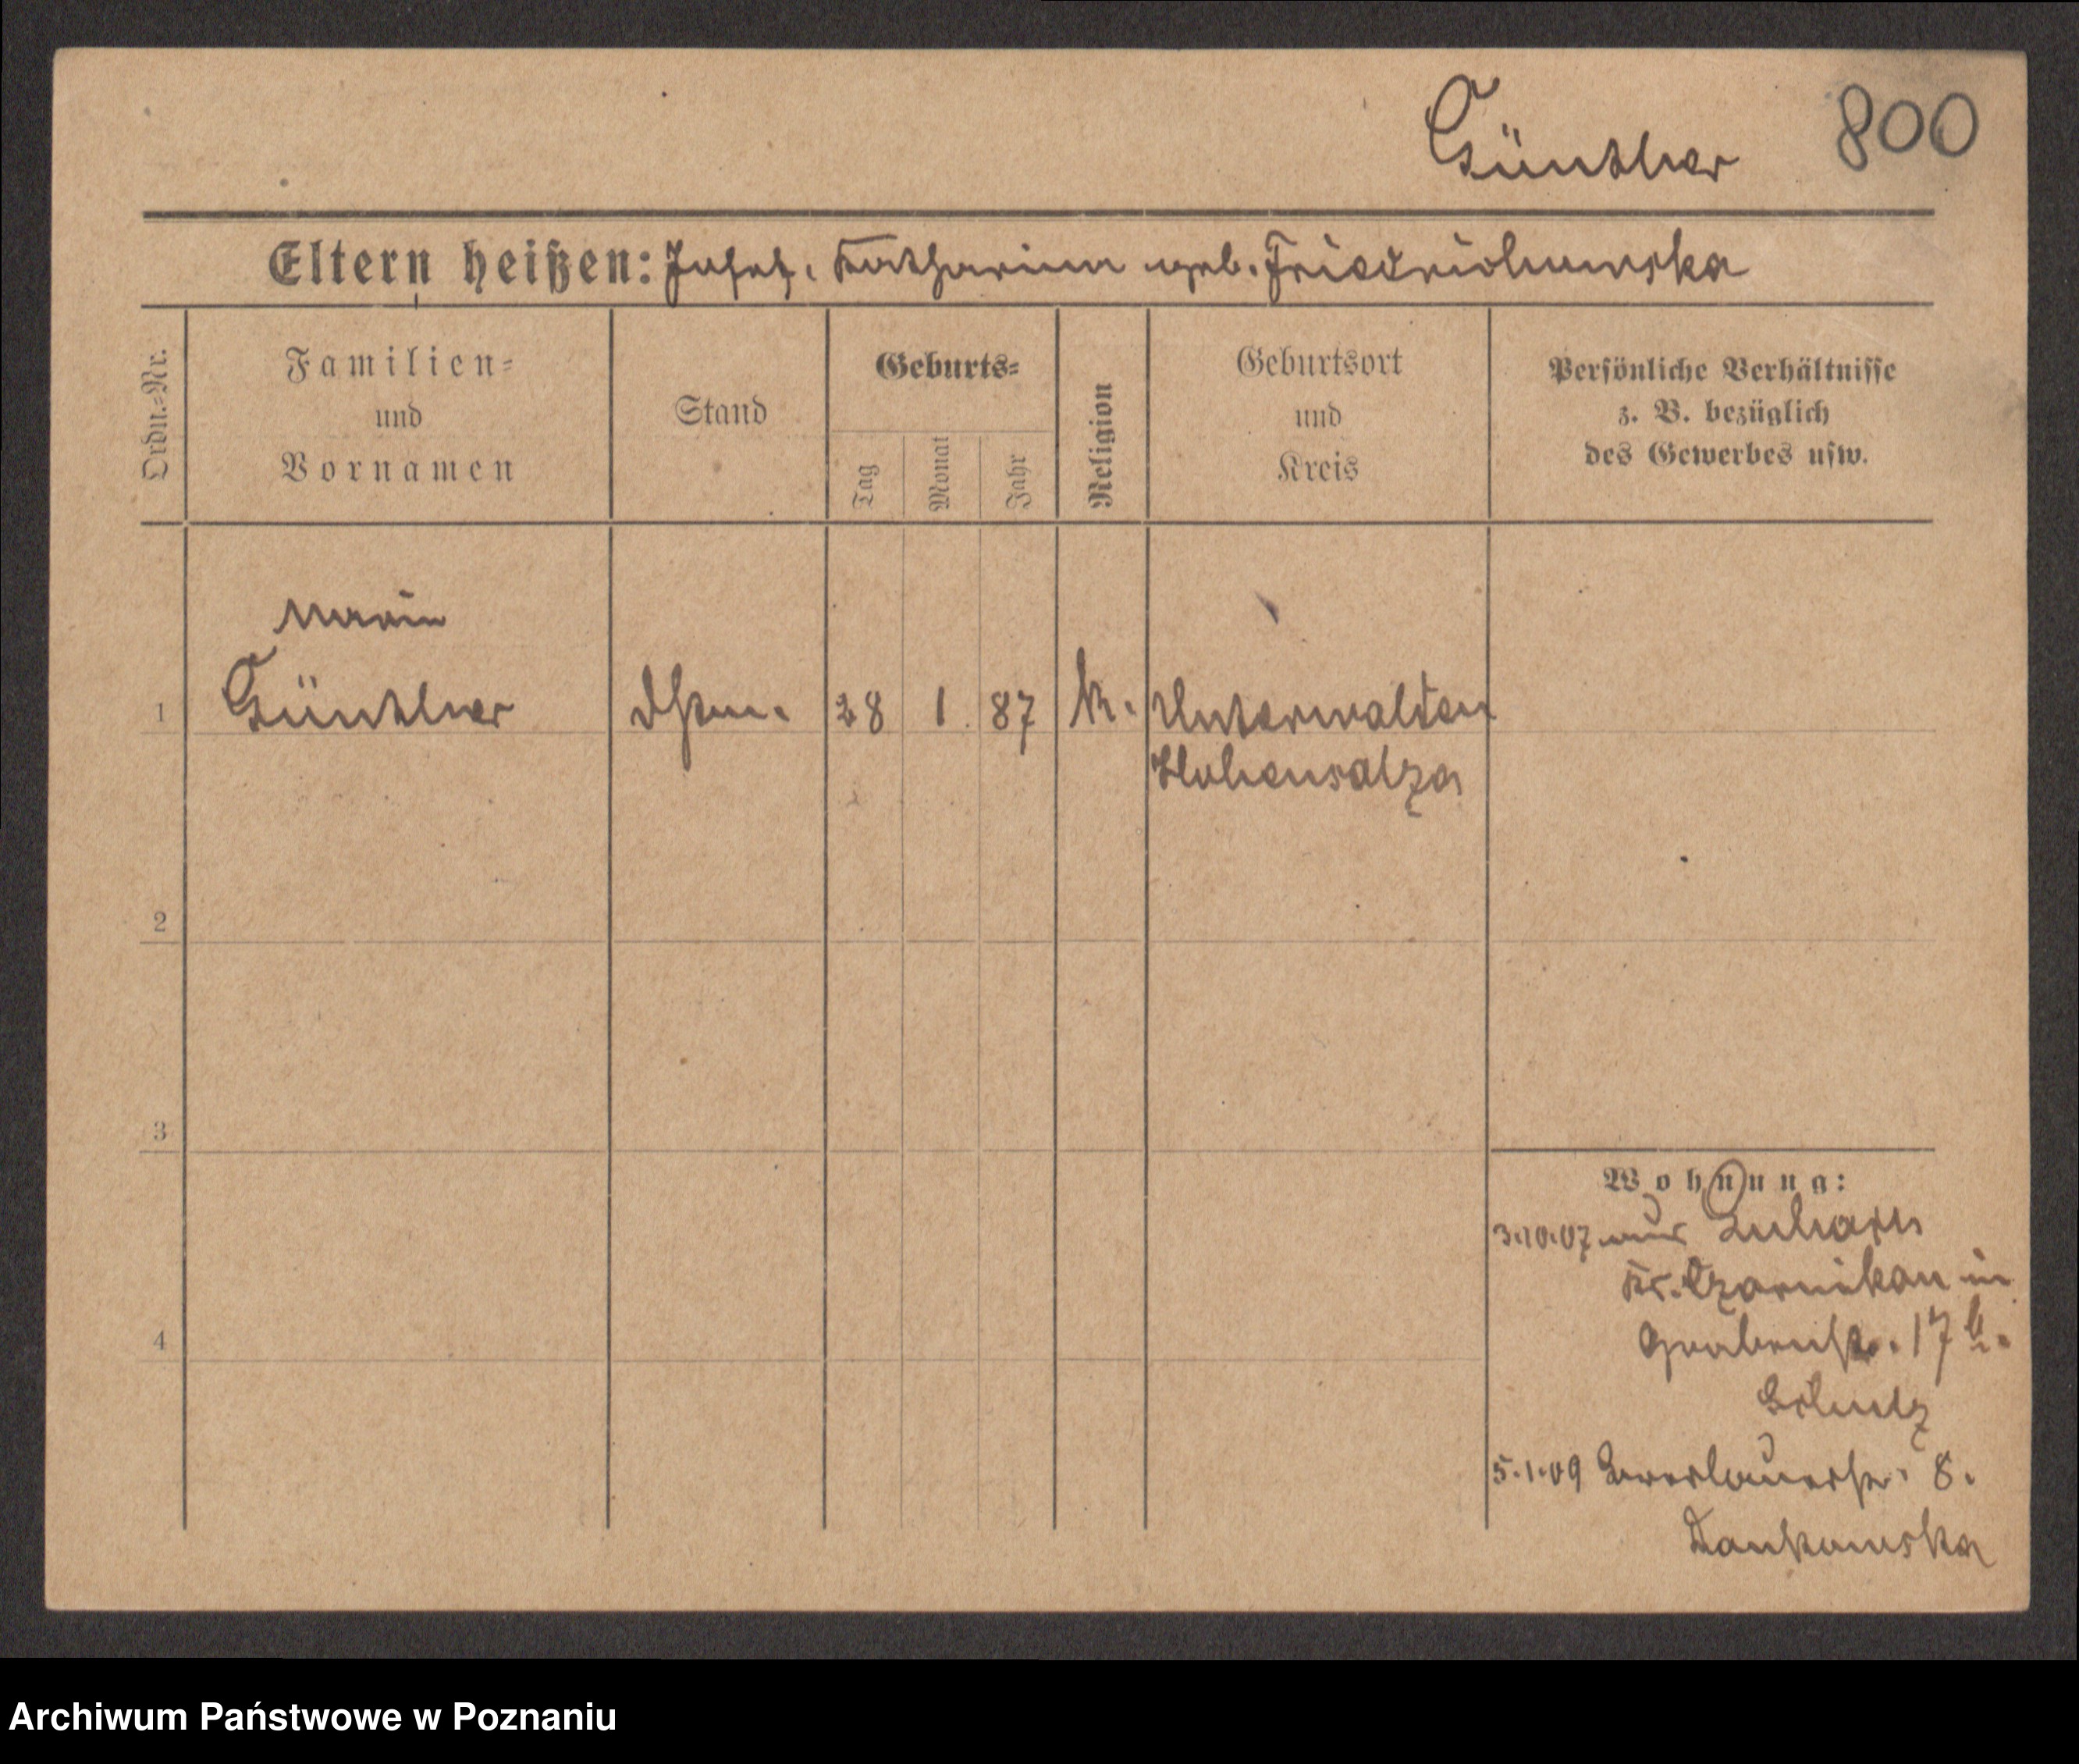 Günther 800
Eltern heißen: Josef, Katharina geb. Friedrichowska
Ordn.=Nr.
Familien=
und
Vornamen
Stand
Geburts=
Tag
Monat
Jahr
Religion
Geburtsort
und
Kreis
Persönliche Verhältnisse
z. B. bezüglich
des Gewerbes usw.
Maria
1 Günther 28 1. 87 k. Unterwalden
Hohensalza
2
3
Wohnung:
3.10.07 aus Lubasch
Kr. Czarnikau in
Grabenstr. 17 b.
Schulz
5.1.09 Breslauerstr. 8.
Dankowska
4
Archiwum Państwowe w Poznaniu